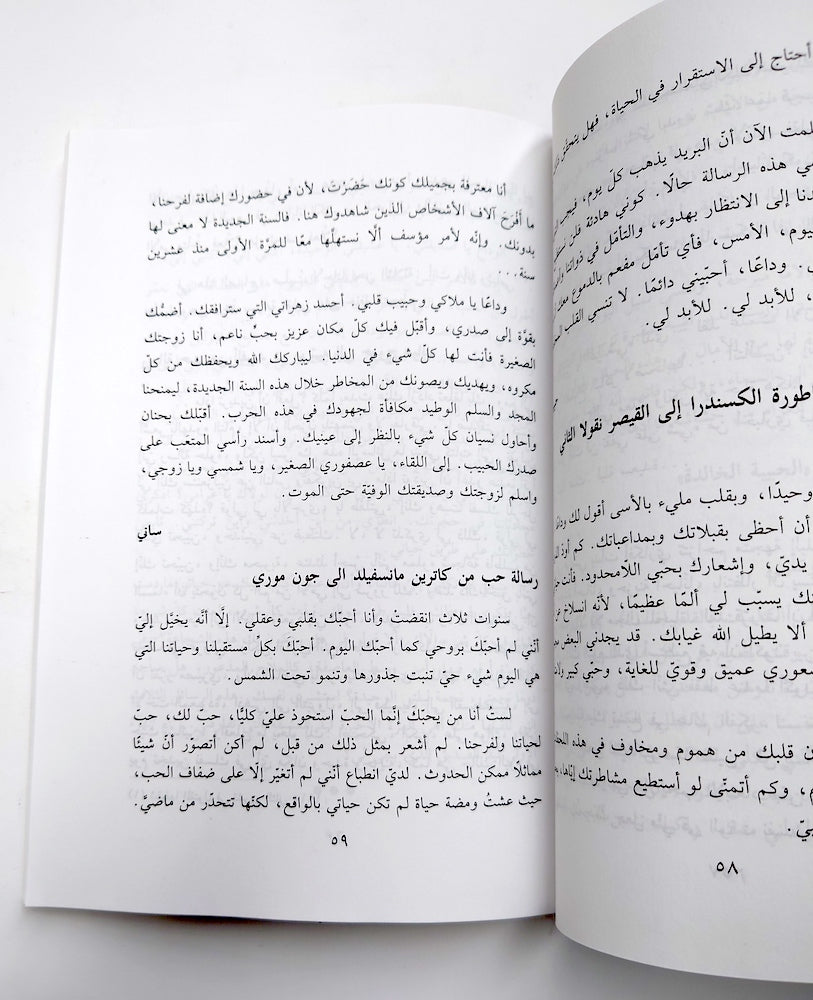 أحتاج إلى الاستقرار في الحياة، فهل
الآن أنّ البريد يذهب كلّ يوم،
هذه الرسالة حالًا. كوني هادئة فلن
إلى الانتظار بهدوء، والتأمّل في ذواتنا
الأمس، فأي تأمّل مفعم بالدموع
وداعًا، أحبّيني دائمًا. لا تنسي القلب
للأبد لي. للأبد لي.
الكسندرا إلى القيصر نقولا الثاني
وحيدًا، وبقلب مليء بالأسى أقول لك
أن أحظى بقبلاتك وبمداعباتك. كم أودّ
يديّ، وإشعارك بحبّي اللاّمحدود. فأنت
يسبّب لي ألمًا عظيمًا، لأنه انسلاخ
ألا يطيل الله غيابك. قد يجدني البعض
عميق وقويّ للغاية، وحبّي كبير
قلبك من هموم ومخاوف في هذه
وكم أتمنّى لو أستطيع مشاطرتك إيّاها،
٥٨
أنا معترفة بجميلك كونك حَضَرْتَ، لأن في حضورك إضافة لفرحنا،
ما أفْرَحَ آلاف الأشخاص الذين شاهدوك هنا. فالسنة الجديدة لا معنى لها
بدونك. وإنّه لأمر مؤسف ألّا نستهلّها معًا للمرّة الأولى منذ عشرين
سنة...
وداعًا يا ملاكي وحبيب قلبي. أحسد زهراتي التي سترافقك. أضمُّك
بقوّة إلى صدري، وأقبّل فيك كلّ مكان عزيز بحبٍّ ناعم، أنا زوجتك
الصغيرة فأنت لها كلّ شيء في الدنيا. ليباركك الله ويحفظك من كلّ
مكروه، ويهديك ويصونك من المخاطر خلال هذه السنة الجديدة، ليمنحنا
المجد والسلم الوطيد مكافأة لجهودك في هذه الحرب. أقبّلك بحنان
وأحاول نسيان كلّ شيء بالنظر إلى عينيك. وأسند رأسي المتعَب على
صدرك الحبيب. إلى اللقاء، يا عصفوري الصغير، ويا شمسي ويا زوجي،
واسلم لزوجتك وصديقتك الوفيّة حتى الموت.
ساني
رسالة حب من كاترين مانسفيلد الى جون موري
سنوات ثلاث انقضتْ وأنا أحبّك بقلبي وعقلي. إلّا أنّه يخيَّل إليّ
أنّني لم أحبّكَ بروحي كما أحبّك اليوم. أحبّكَ بكلِّ مستقبلنا وحياتنا التي
هي اليوم شيء حيّ تنبت جذورها وتنمو تحت الشمس.
لستُ أنا من يحبّكَ إنَّما الحبّ استحوذ عليّ كليًّا، حبّ لك، حبّ
لحياتنا ولفرحنا. لم أشعر بمثل ذلك من قبل، لم أكن أتصوّر أنّ شيئًا
مماثلًا ممكن الحدوث. لديّ انطباع أنّني لم أتغيّر إلّا على ضفاف الحب،
حيث عشتُ ومضة حياة لم تكن حياتي بالواقع، لكنّها تتحدّر من ماضيَّ.
٥٩